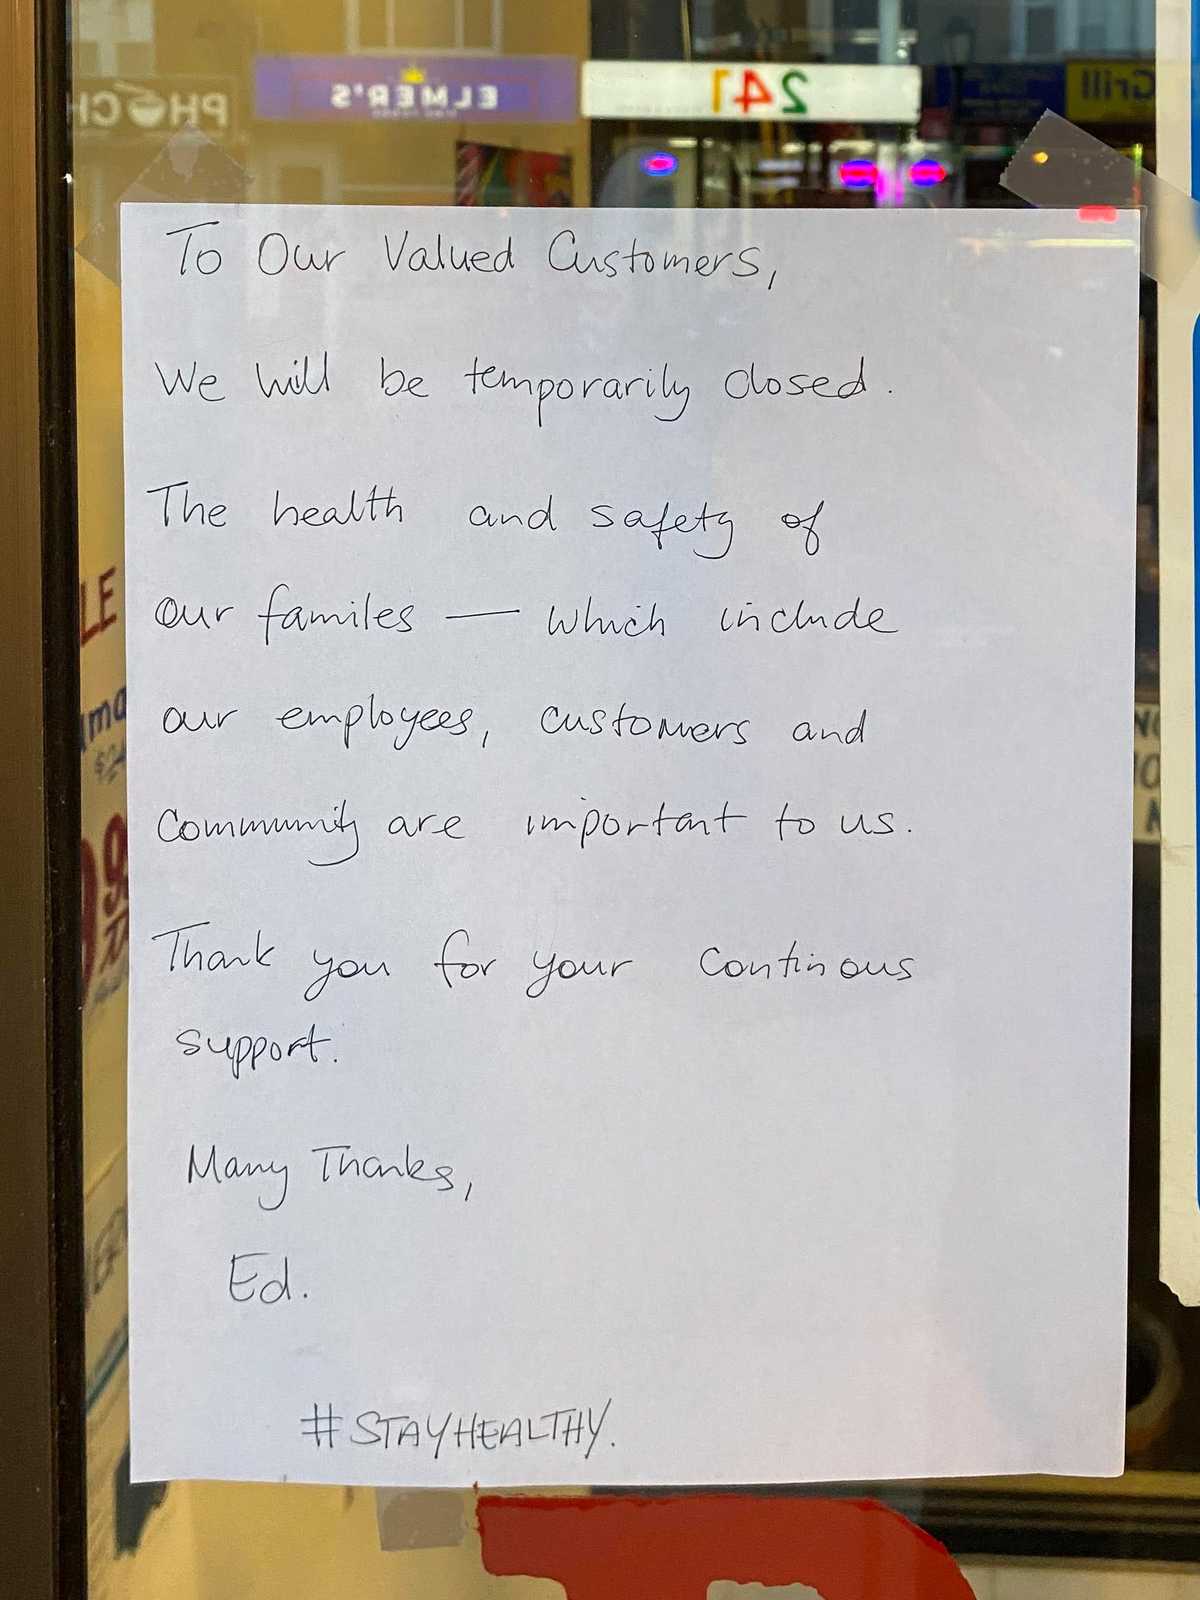 PHO CH
ELMER'S
241
Grill
To Our Valued Customers,
We will be temporarily closed.
The health and safety of
our familes — which include
our employees, customers and
community are important to us.
Thank you for your continous
support.
Many Thanks,
Ed.
#STAYHEALTHY.
LE